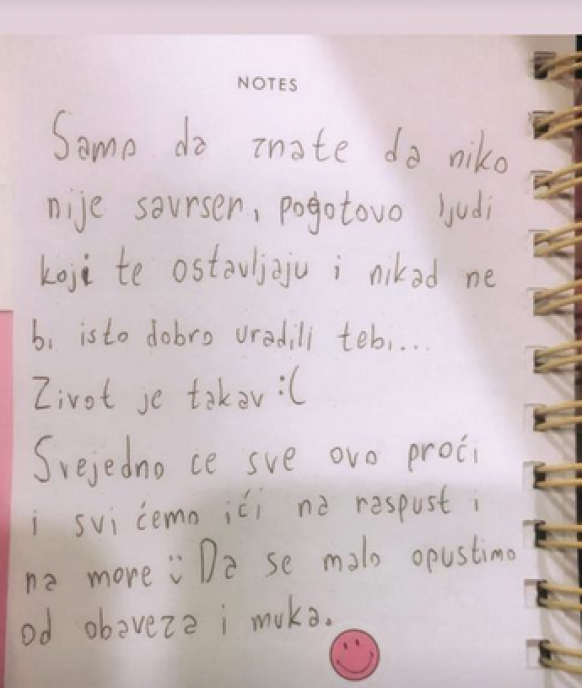 NOTES
Samo da znate da niko
nije savrsen, pogotovo ljudi
koji te ostavljaju i nikad ne
bi isto dobro uradili tebi...
Zivot je takav :(
Svejedno ce sve ovo proći
i svi ćemo ići na raspust i
na more :) Da se malo opustimo
od obaveza i muka.